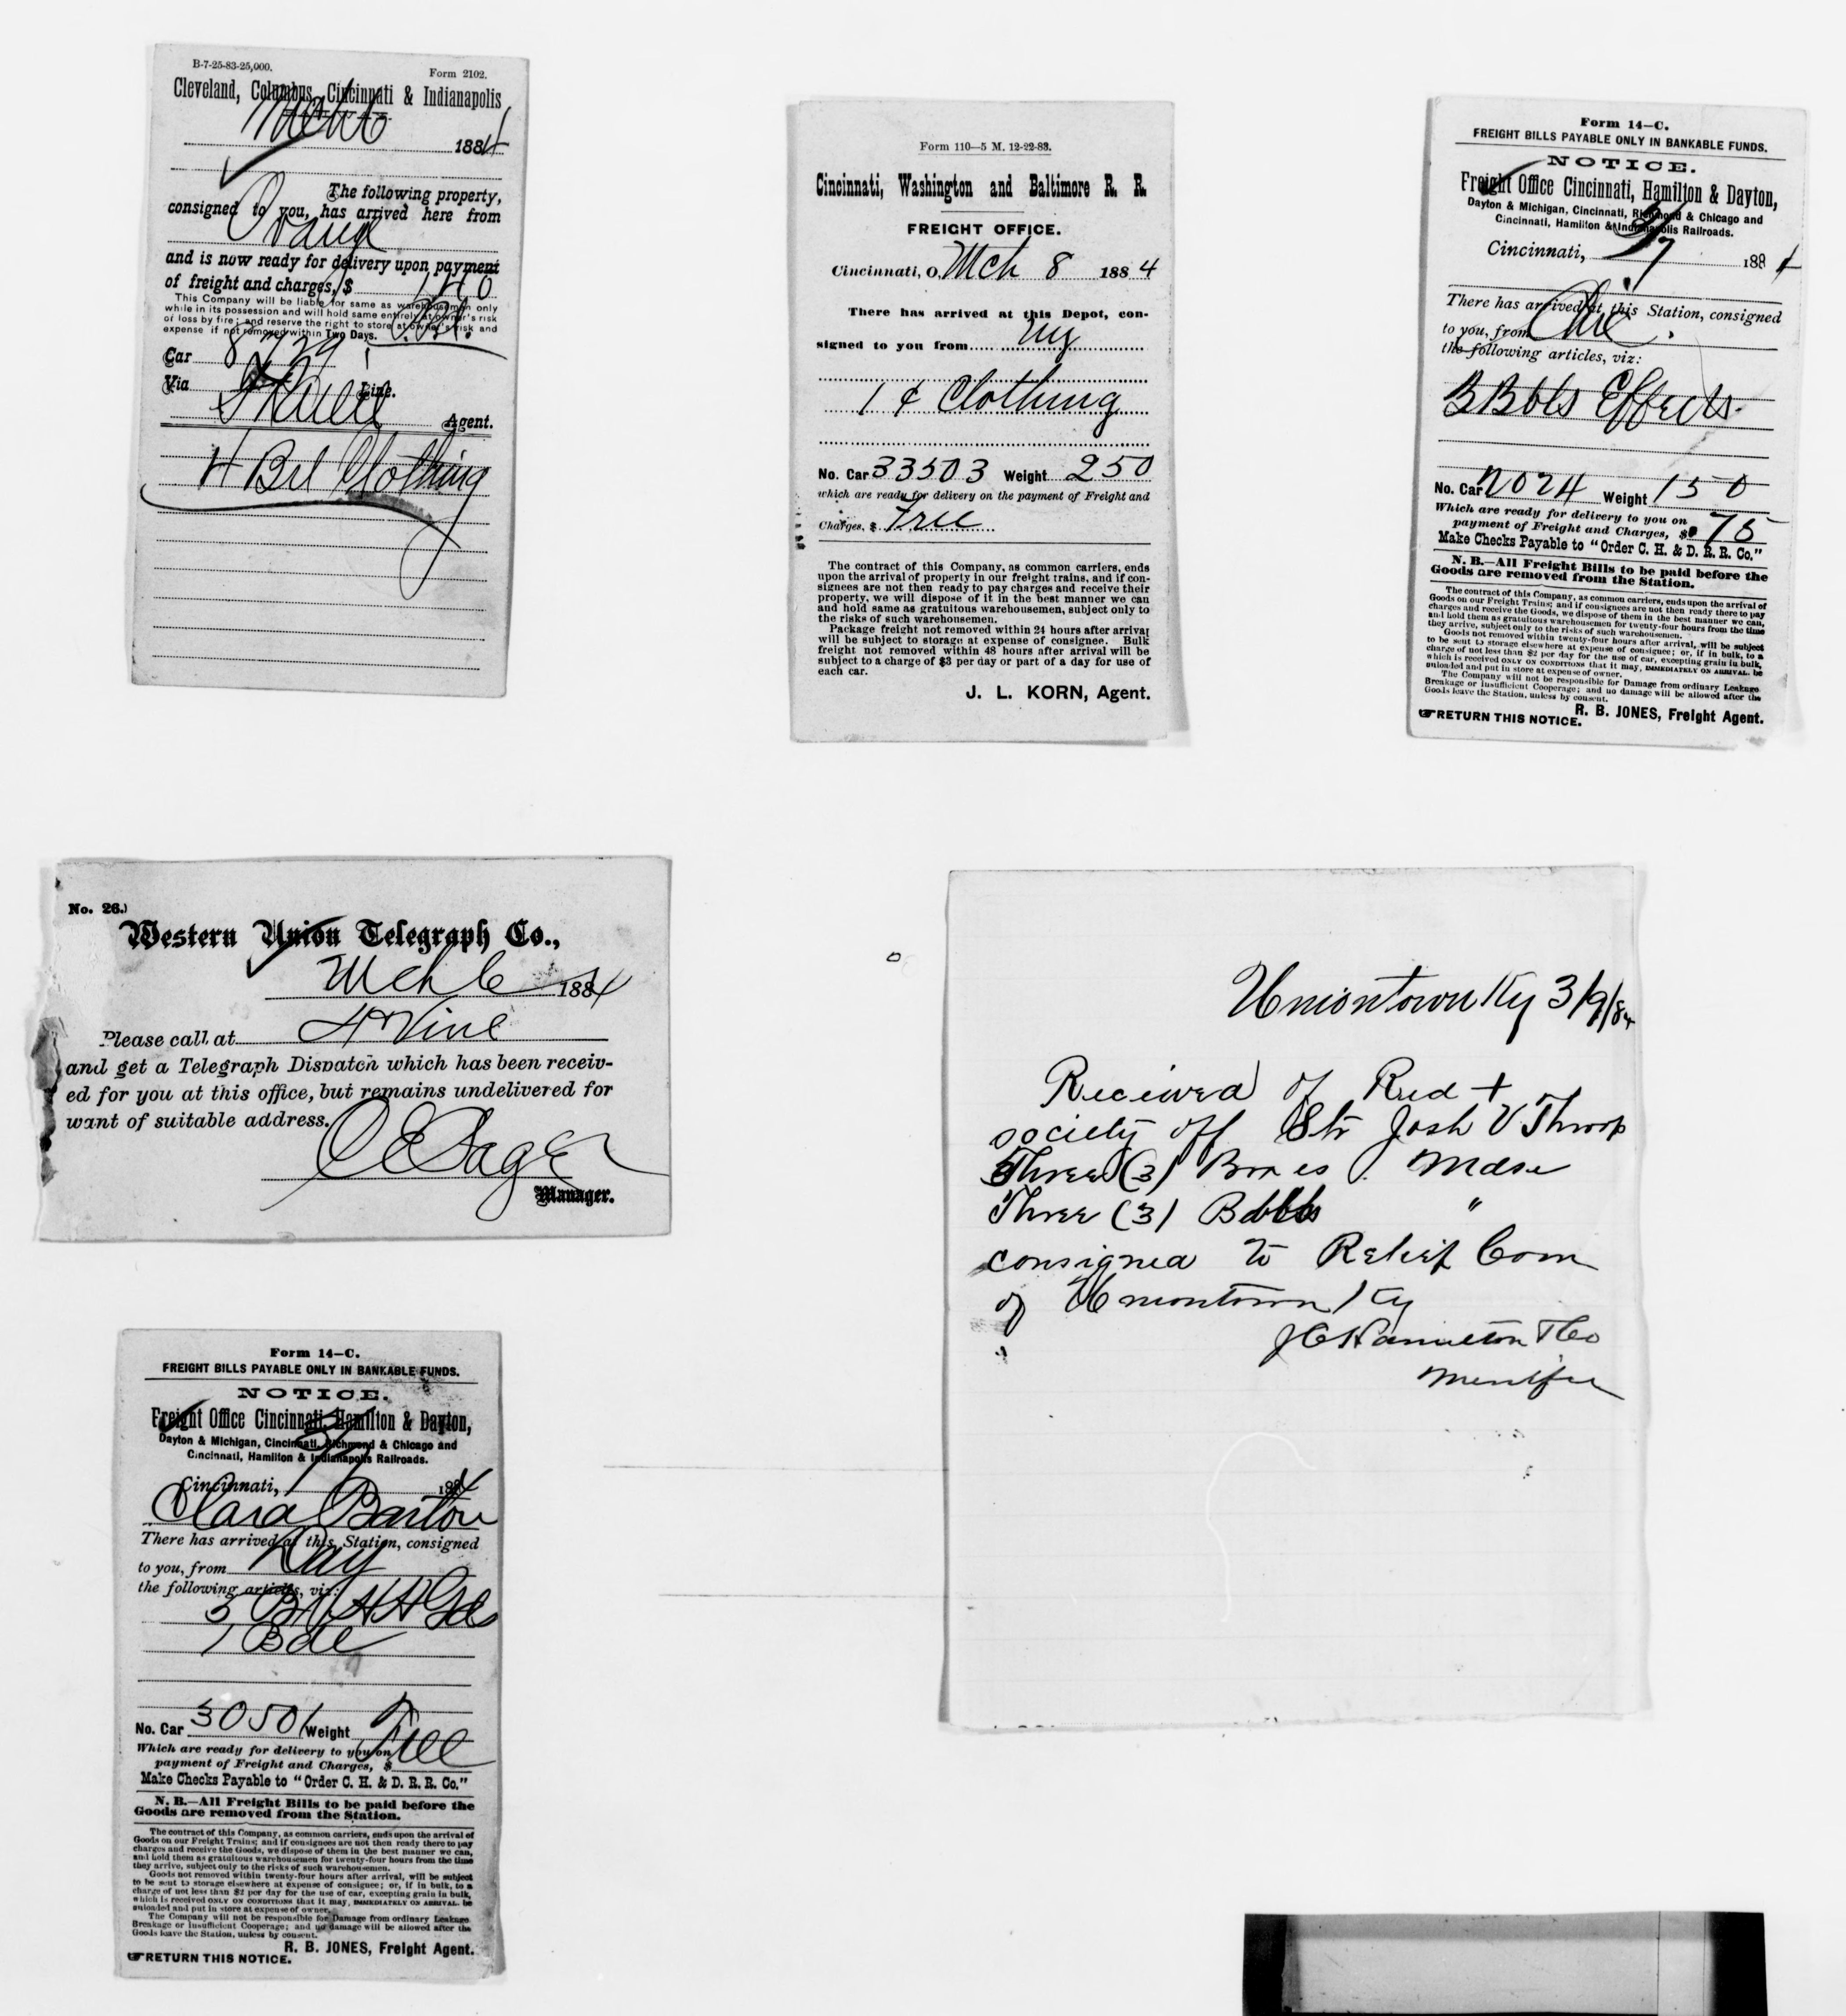 B-7-25-83-25,000.
Form 2102.
Cleveland, Columbus, Cincinnati & Indianapolis
Mch 6
1884
The following property,
consigned to you, has arrived here from
Orange
and is now ready for delivery upon payment
of freight and charges, $ 140
This Company will be liable for same as warehousemen only
while in its possession and will hold same entirely at owner's risk
of loss by fire; and reserve the right to store at owner's risk and
expense if not removed within Two Days.
Car 8729
Via Line.
Agent.
4 Bxl Clothing
Form 110—5 M. 12-22-83.
Cincinnati, Washington and Baltimore R. R.
FREIGHT OFFICE.
Cincinnati, O, Mch 8 1884
There has arrived at this Depot, con-
signed to you from Ny
1 c Clothing
No. Car 33503 Weight 250
which are ready for delivery on the payment of Freight and
Charges, $ Free
The contract of this Company, as common carriers, ends
upon the arrival of property in our freight trains, and if con-
signees are not then ready to pay charges and receive their
property, we will dispose of it in the best manner we can
and hold same as gratuitous warehousemen, subject only to
the risks of such warehousemen.
Package freight not removed within 24 hours after arrival
will be subject to storage at expense of consignee. Bulk
freight not removed within 48 hours after arrival will be
subject to a charge of $3 per day or part of a day for use of
each car.
J. L. KORN, Agent.
Form 14—C.
FREIGHT BILLS PAYABLE ONLY IN BANKABLE FUNDS.
NOTICE.
Freight Office Cincinnati, Hamilton & Dayton,
Dayton & Michigan, Cincinnati, Richmond & Chicago and
Cincinnati, Hamilton & Indianapolis Railroads.
Cincinnati, 3/7 1884
There has arrived at this Station, consigned
to you, from Chi.
the following articles, viz:
3 Bbls Effects
No. Car 2024 Weight 150
Which are ready for delivery to you on
payment of Freight and Charges, $ .75
Make Checks Payable to "Order C. H. & D. R. R. Co."
N. B.—All Freight Bills to be paid before the
Goods are removed from the Station.
The contract of this Company, as common carriers, ends upon the arrival of
Goods on our Freight Trains; and if consignees are not then ready there to pay
charges and receive the Goods, we dispose of them in the best manner we can,
and hold them as gratuitous warehousemen for twenty-four hours from the time
they arrive, subject only to the risks of such warehousemen.
Goods not removed within twenty-four hours after arrival, will be subject
to be sent to storage elsewhere at expense of consignee; or, if in bulk, to a
charge of not less than $2 per day for the use of car, excepting grain in bulk,
which is received ONLY ON CONDITIONS that it may, IMMEDIATELY ON ARRIVAL, be
unloaded and put in store at expense of owner.
The Company will not be responsible for Damage from ordinary Leakage
Breakage or Insufficient Cooperage; and no damage will be allowed after the
Goods leave the Station, unless by consent.
R. B. JONES, Freight Agent.
RETURN THIS NOTICE.
No. 26.)
Western Union Telegraph Co.,
Mch 6 1884
Please call at 4 & Vine
and get a Telegraph Dispatch which has been receiv-
ed for you at this office, but remains undelivered for
want of suitable address.
C E Sager
Manager.
Uniontown Ky 3/9/84
Received of Red +
society off Str Josh V Throop
Three (3) Boxes Mdse
Three (3) Bbls "
consigned to Relief Com
of Uniontown Ky
J C Hamilton & Co
Form 14—C.
FREIGHT BILLS PAYABLE ONLY IN BANKABLE FUNDS.
NOTICE.
Freight Office Cincinnati, Hamilton & Dayton,
Dayton & Michigan, Cincinnati, Richmond & Chicago and
Cincinnati, Hamilton & Indianapolis Railroads.
Cincinnati, 3/7 1884
Clara Barton
There has arrived at this Station, consigned
to you, from Day
the following articles, viz:
5 Bx HH Gds
1 Bdl
No. Car 30501 Weight
Which are ready for delivery to you on
payment of Freight and Charges, $ Free
Make Checks Payable to "Order C. H. & D. R. R. Co."
N. B.—All Freight Bills to be paid before the
Goods are removed from the Station.
The contract of this Company, as common carriers, ends upon the arrival of
Goods on our Freight Trains; and if consignees are not then ready there to pay
charges and receive the Goods, we dispose of them in the best manner we can,
and hold them as gratuitous warehousemen for twenty-four hours from the time
they arrive, subject only to the risks of such warehousemen.
Goods not removed within twenty-four hours after arrival, will be subject
to be sent to storage elsewhere at expense of consignee; or, if in bulk, to a
charge of not less than $2 per day for the use of car, excepting grain in bulk,
which is received ONLY ON CONDITIONS that it may, IMMEDIATELY ON ARRIVAL, be
unloaded and put in store at expense of owner.
The Company will not be responsible for Damage from ordinary Leakage
Breakage or Insufficient Cooperage; and no damage will be allowed after the
Goods leave the Station, unless by consent.
R. B. JONES, Freight Agent.
RETURN THIS NOTICE.